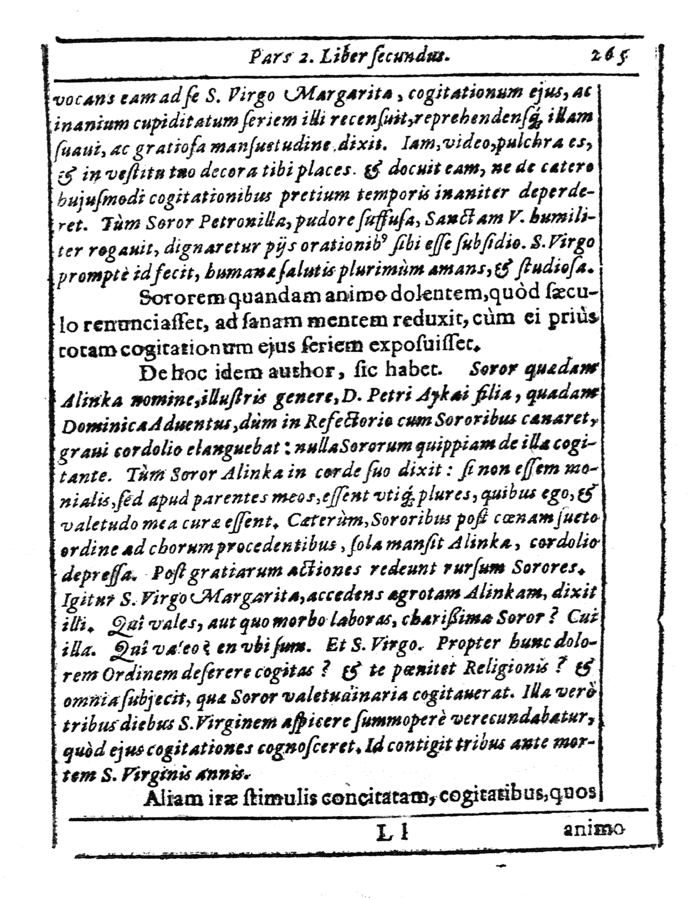 Pars 2. Liber ſecundus. 265
vocans eam ad ſe S. Virgo Margarita, cogitationum ejus, ac
inanium cupiditatum ſeriem illi recenſuit, reprehendenſq́, illam
ſuaui, ac gratioſa manſuetudine dixit. Iam, video, pulchra es,
& in veſtitu tuo decora tibi places. & docuit eam, ne de cætero
hujuſmodi cogitationibus pretium temporis inaniter deperde-
ret. Tùm Soror Petronilla, pudore ſuffuſa, Sanctam V. humili-
ter rogauit, dignaretur pijs orationibꝰ ſibi eſſe ſubſidio. S. Virgo
promptè id fecit, humanæ ſalutis plurimùm amans, & ſtudioſa.
Sororem quandam animo dolentem, quòd ſæcu-
lo renunciaſſet, ad ſanam mentem reduxit, cùm ei priùs
totam cogitationum ejus ſeriem expoſuiſſet.
De hoc idem author, ſic habet. Soror quædam
Alinka nomine, illuſtris genere, D. Petri Aykai filia, quadam
Dominica Aduentus, dùm in Refectorio cum Sororibus cænaret,
graui cordolio elanguebat: nulla Sororum quippiam de illa cogi-
tante. Tùm Soror Alinka in corde ſuo dixit: ſi non eſſem mo-
nialis, ſed apud parentes meos, eſſent vtiq́, plures, quibus ego, &
valetudo mea curæ eſſent. Cæterùm, Sororibus poſt cœnam ſueto
ordine ad chorum procedentibus, ſola manſit Alinka, cordolio
depreſſa. Poſt gratiarum actiones redeunt rurſum Sorores.
Igitur S. Virgo Margarita, accedens ægrotam Alinkam, dixit
illi. Quî vales, aut quo morbo laboras, chariſſima Soror? Cui
illa. Quî valeo? en vbi ſum. Et S. Virgo. Propter hunc dolo-
rem Ordinem deſerere cogitas? & te pænitet Religionis? &
omnia ſubjecit, quæ Soror valetudinaria cogitauerat. Illa verò
tribus diebus S. Virginem aſpicere ſummoperè verecundabatur,
quòd ejus cogitationes cognoſceret. Id contigit tribus ante mor-
tem S. Virginis annis.
Aliam iræ ſtimulis concitatam, cogitatibus, quos
L l animo